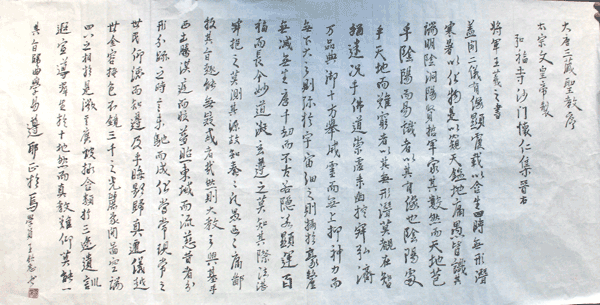 大唐三藏聖教序
太宗文皇帝製
弘福寺沙門懷仁集晉右
將軍王羲之書
蓋聞二儀有像顯覆載以含生四時無形潛
寒暑以化物是以窺天鑑地庸愚皆識其
端明陰洞陽賢哲罕窮其數然而天地苞
乎陰陽而易識者以其有像也陰陽處
乎天地而難窮者以其無形潛莫覩在智
猶迷況乎佛道崇虛乘幽控寂弘濟
萬品典御十方舉威靈而無上抑神力而
無下大之則彌於宇宙細之則攝於豪釐
無滅無生歷千劫而不古若隱若顯運百
福而長今妙道凝玄遵之莫知其際法流湛
寂挹之莫測其源故知蠢蠢凡愚區區庸鄙
投其旨趣能無疑惑者哉然則大教之興基乎
西土騰漢庭而皎夢照東域而流慈昔者分
形分跡之時言未馳而成化當常現常之
世民仰德而知遵及乎晦影歸真遷儀越
世金容掩色不鏡三千之光麗象開圖空端
四八之相於是微言廣被拯含類於三途遺訓
遐宣導群生於十地然而真教難仰莫能一
其旨歸曲學易遵耶正於焉